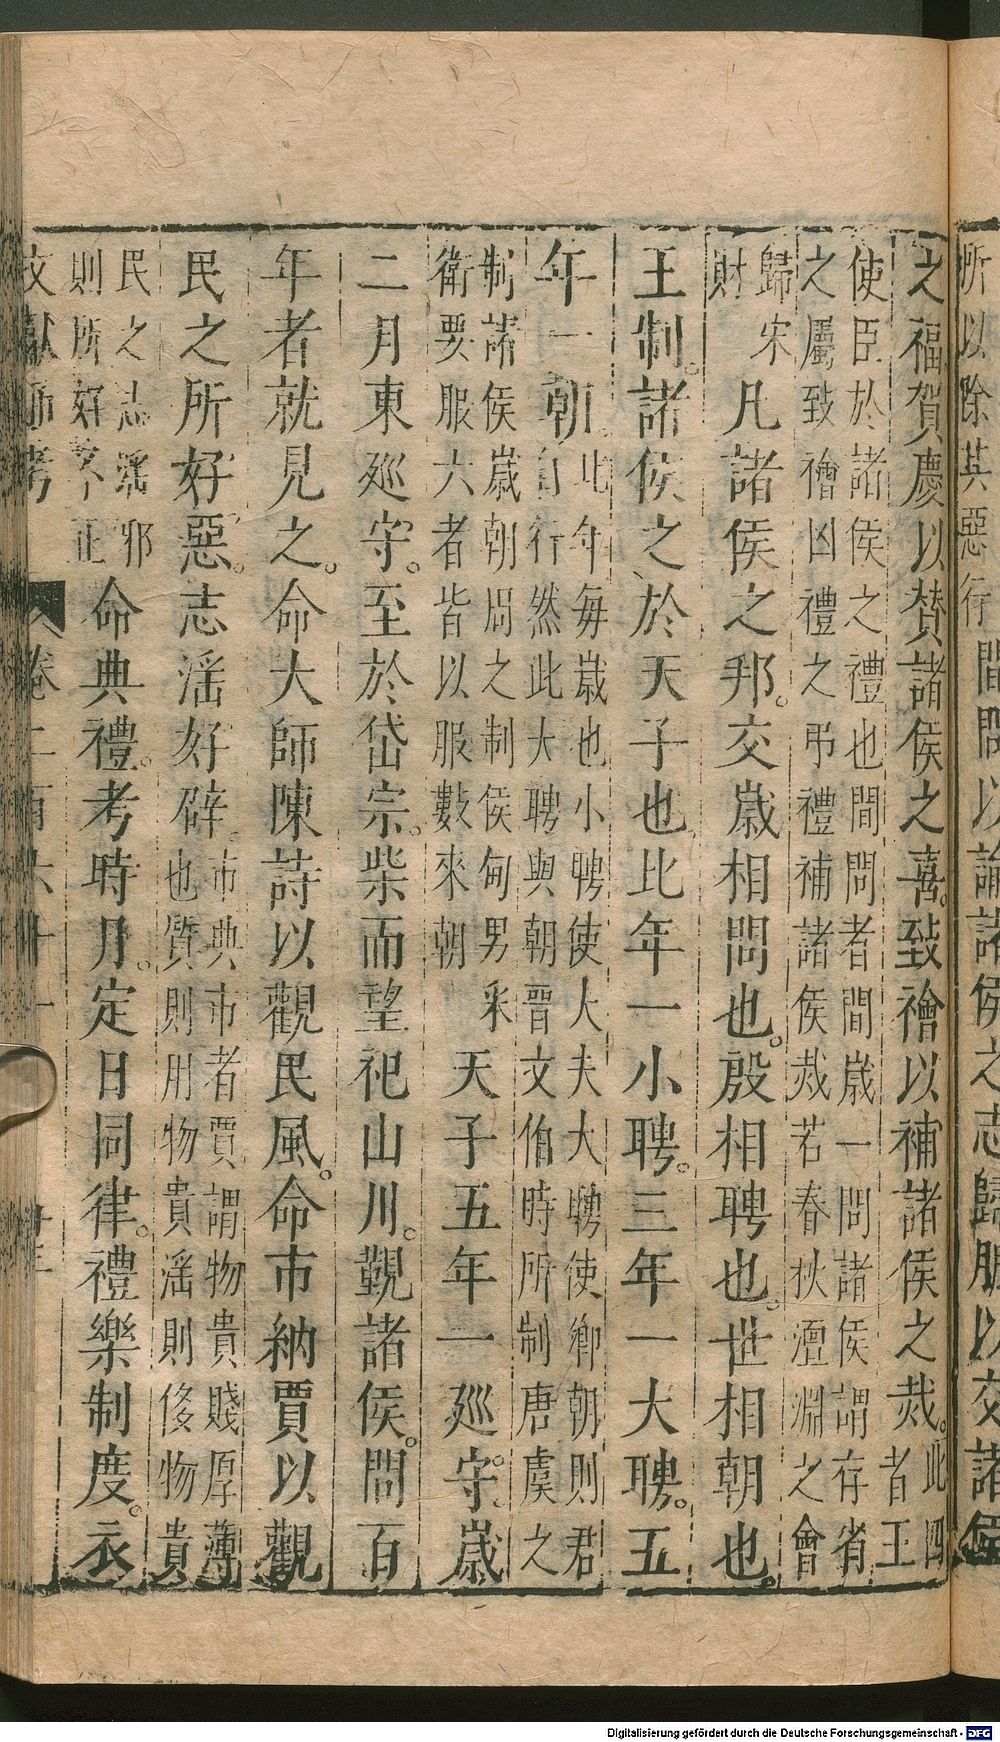 所以除其惡行間問以諭諸侯之志歸脤以交諸侯
之福賀慶以贊諸侯之喜。致禬以補諸侯之烖。此四
者王
使臣於諸侯之禮也間問者間歲一問諸侯謂存省
之屬致禬凶禮之弔禮補諸侯烖若春秋澶淵之會
歸宋
財
凡諸侯之邦。交歲相問也。殷相聘也。世相朝也。
王制。諸侯之於天子也。比年一小聘。三年一大聘。五
年一朝。
比年每歲也小聘使大夫大聘使卿朝則君
自行然此大聘與朝晉文伯時所制唐虞之
制諸侯歲朝周之制侯甸男采
衛要服六者皆以服數來朝
天子五年一廵守。歲
二月東廵守。至於岱宗。柴而望祀山川。覲諸侯。問百
年者就見之。命大師陳詩以觀民風。命市納賈以觀
民之所好惡。志滛好辟。
市典市者賈謂物貴賤厚薄
也質則用物貴滛則侈物貴
民之志滛邪
則所好不正
命典禮。考時月。定日同律。禮樂制度。衣
文獻通考 卷二百六十一
Digitalisierung gefördert durch die Deutsche Forschungsgemeinschaft - DFG